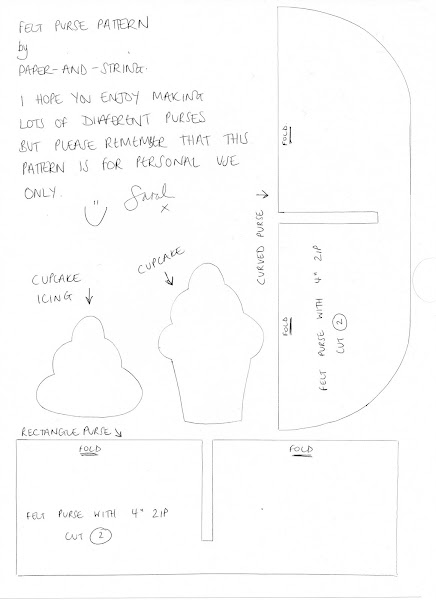 FELT PURSE PATTERN
by
PAPER-AND-STRING.
I HOPE YOU ENJOY MAKING
LOTS OF DIFFERENT PURSES
BUT PLEASE REMEMBER THAT THIS
PATTERN IS FOR PERSONAL USE
ONLY.
Sarah
x
CUPCAKE
ICING
CUPCAKE
CURVED PURSE
FOLD
FOLD
FELT PURSE WITH 4" ZIP
CUT 2
RECTANGLE PURSE
FOLD
FOLD
FELT PURSE WITH 4" ZIP
CUT 2